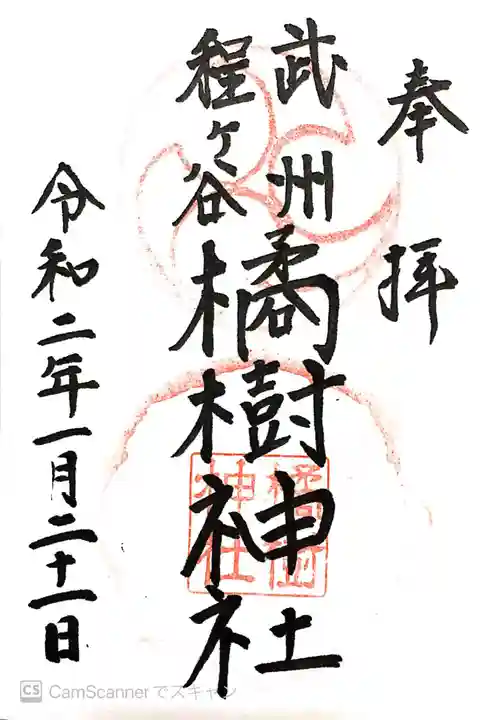 奉拝
武州
程ヶ谷
橘樹神社
令和二年一月二十一日
CS CamScannerでスキャン